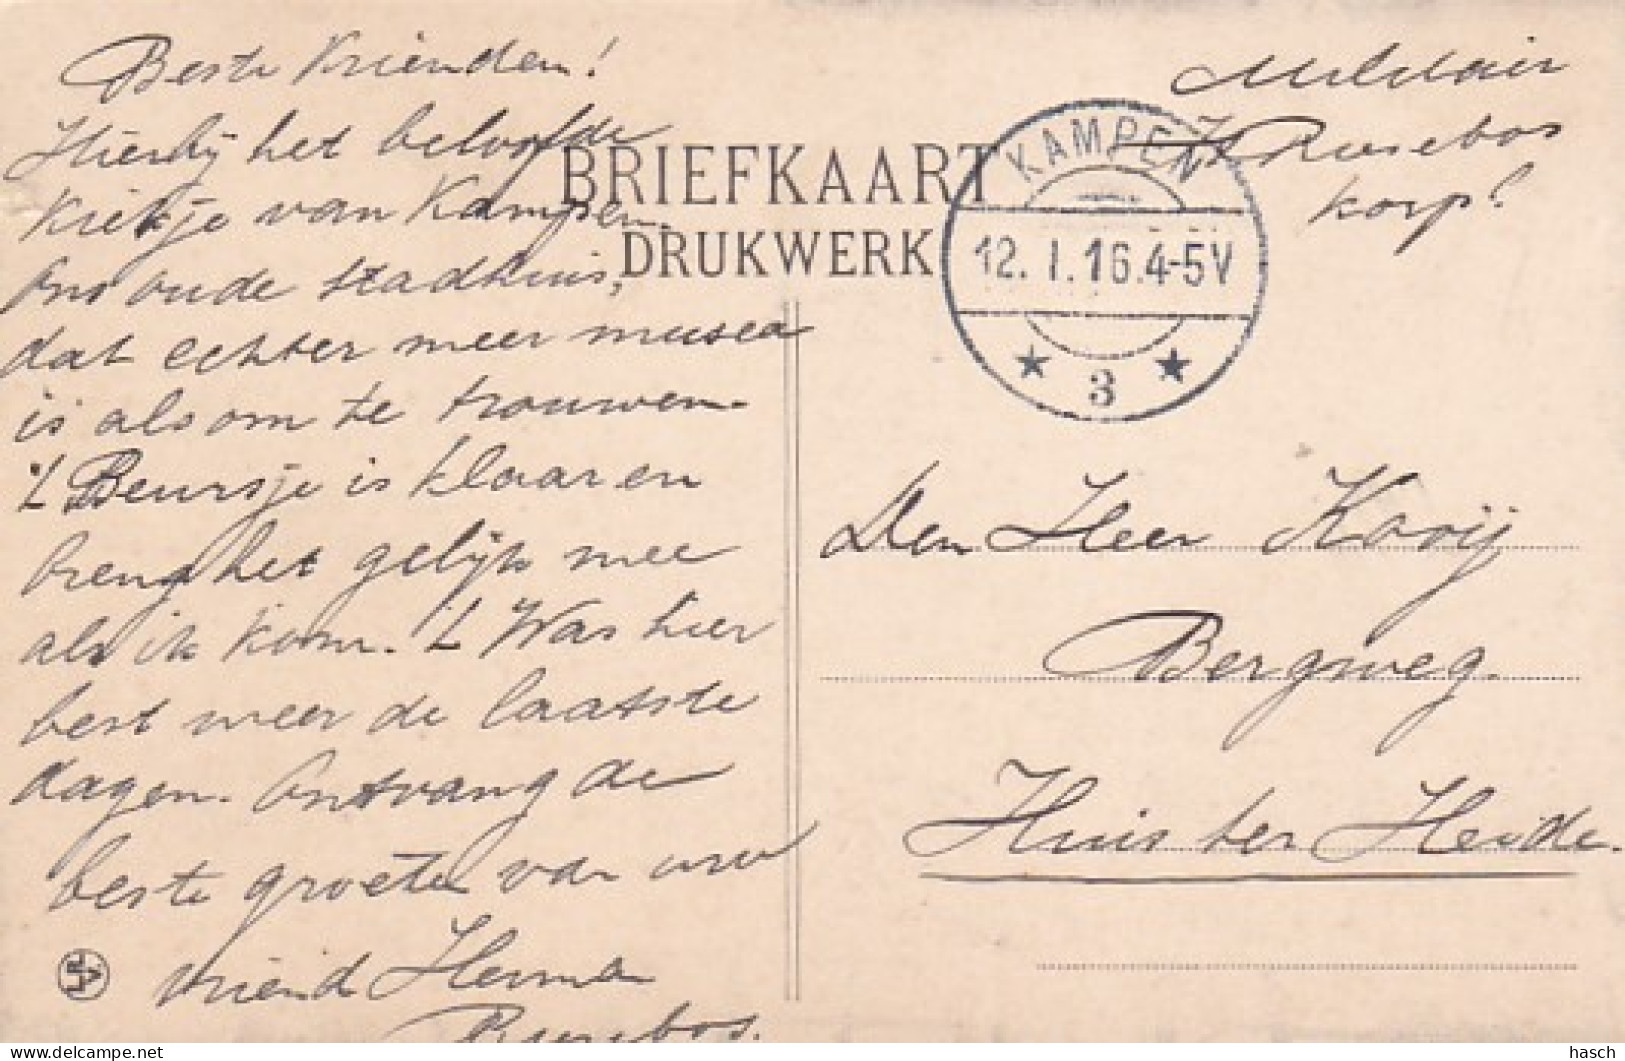 Beste Vrienden!
Hierbij het beloofde
Kiekje van Kampen
Ons oude stadhuis,
dat echter meer musea
is als om te trouwen.
't Beursje is klaar en
breng het gelijk mee
als ik kom. 't Was hier
best weer de laatste
dagen. Ontvang de
beste groeten van uw
vriend Herman
Rusebos.
BRIEFKAART
DRUKWERK
KAMPEN
12. I. 16. 4-5V
3
Militair
Rusebos
korp!
Den Heer Kooij
Bergweg.
Huis ter Heide.
hasch